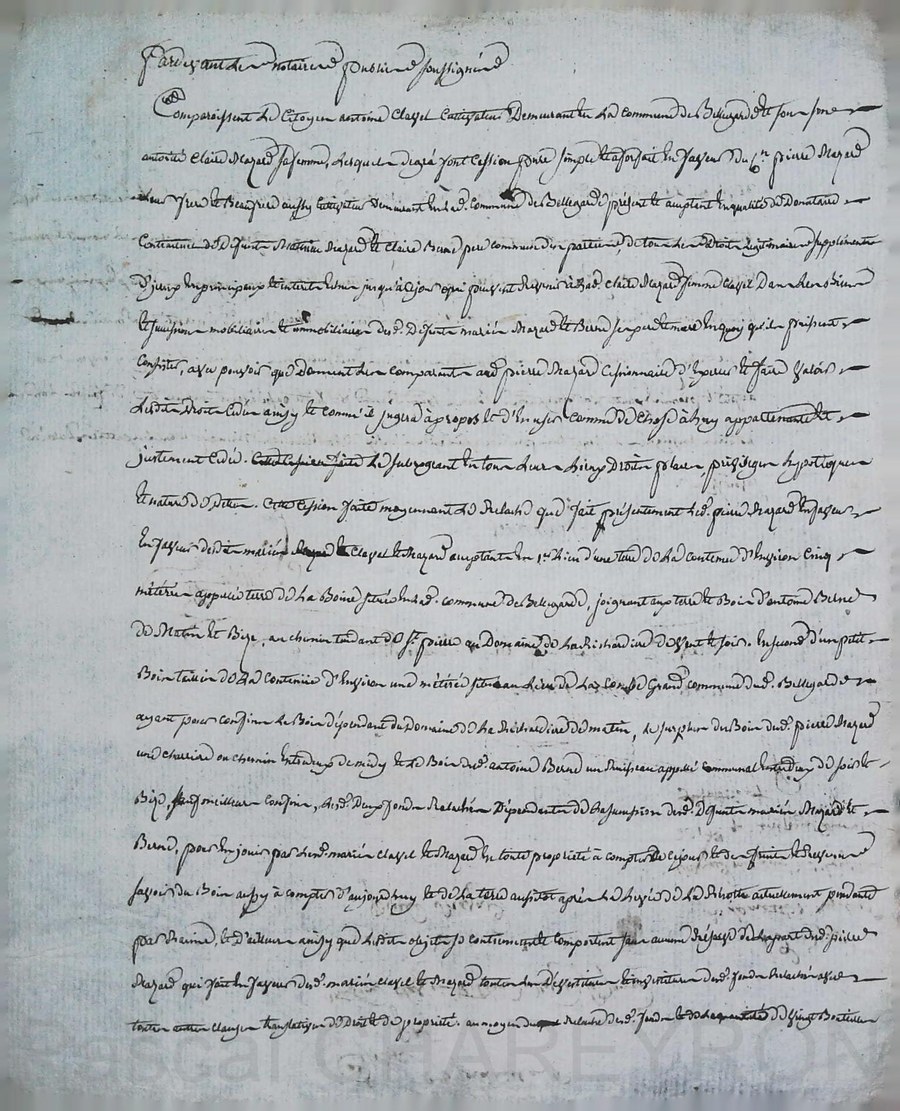 Pardevant le notaire public soussigné
Comparoissent le Citoyen antoine Clavel Cultivateur Demeurant en la commune de Bellegarde et sous son
autorité Claire Mazard sa femme, lesquels de gré font Cession pure simple et a forfait en faveur du Cn pierre Mazard
leur frere et Beaufrere aussy Cultivateur Demeurant en lad. Commune de Bellegarde présent et acceptent en qualité de Donnataire
Contractuel de Defunts Mazard et Claire Bernd pere commun d'un partie, de tous les Droits legitimaires supplément
D'jceux en principaux et interets echus jusqu'à ce jour qui peuvent Revenir à lad. Claire Mazard femme Clavel Dans les Biens
et succession mobiliaire et immobiliaire desd. Defunts mariés Mazard et Bernd ses pere et mere en quoy qu'ils puissent
Consister, avec pouvoir que donnent les comparants aud. pierre Mazard Cessionnaire d'Exercer et faire valoir
lesdits Droits Cédés ainsy et comme il jugera à propos et d'En user comme de chose à luy appartenante et
justement Cédée. le subrogeant en tous leurs lieux Droits places, privileges hypotheques
et nature de dettes. Cette Cession faite moyennant le Relaché que fait présentement led. pierre Mazard en faveur
En faveur desdits mariés Clavel et Mazard acceptants en 1er lieu d'une terre de la contenue d'Environ Cinq
métérées appellée terre de la Boine située en lad. commune de Bellegarde, joignant aux terre et Bois d'antoine Bernd
de Matin et Bize, au chemin tendant de St. pierre au Domaine de la Richardiere de vent et soir. En second d'un petit
Bois taillis de la Contenue d'Environ une métérée situé au lieu de la Combe Grand commune dud. Bellegarde
ayant pour confins le Bois dépendant du Domaine de la Richardiere de matin, le surplus du Bois dud. pierre Mazard
une charriere ou chemin Entredeux de midy et le Bois dud. antoine Bernd un Ruisseau appellé communal entredeux de soir et
Bize, sauf meilleurs confins, lesd. Deux fonds Relachés Dépendants de la succession desd. Defunts mariés Mazard et
Bernd, pour En jouir par lesd. mariés Clavel et Mazard en toute propriété à compter de ce jour et des fruits et Revenus
savoir du Bois aussy à compter d'aujourdhuy et de la terre aussitot après la levée de la Récolte actuellement pendante
par Racine, et D'ailleurs ainsy que lesdits objets se contiennent et Comportent sans aucune Réserve de la part dud. pierre
Mazard qui fait en faveur desd. mariés Clavel et Mazard toutes les Devestitures et investitures desd. fonds Relachés avec
toutes autres clauses translatives de Droit et de propriété. au moyen du Relaché desd. fonds de vingt Boisseaux
Pascal CHAREYRON